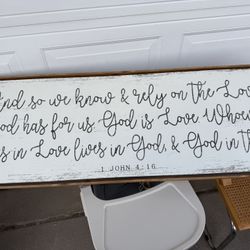 And so we know & rely on the Lov
God has for us. God is Love. Whoev
es in Love lives in God, & God in th
1 JOHN 4:16